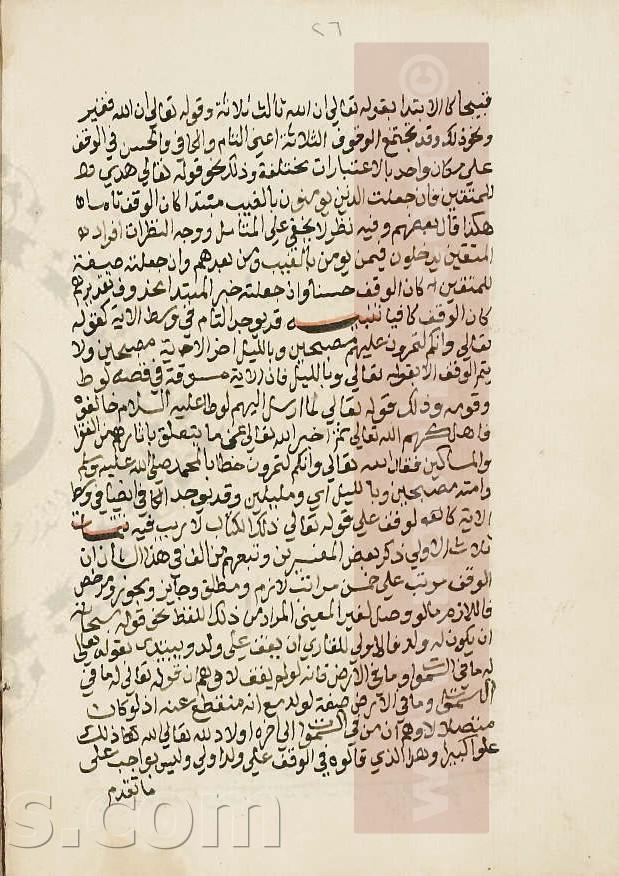 ٢٦
فيبحا كالابتدا بقوله تعالى ان الله ثالث ثلاثة وقوله تعالى ان الله فقير
ونحو ذلك وقد تجتمع الوقوف الثلاثة اعني التام والكافي والحسن في الوقف
على مكان واحد بالاعتبارات مختلفة وذلك نحو قوله تعالى هدي
للمتقين فان جعلت الذين يومنون بالغيب مبتدا كان الوقف تاما
هكذا قال بعضهم وفيه نظر لا يخفى على المتامل ووجه النظر ان افراد
المتقين يدخلون فيمن يومن بالغيب ومن بعدهم وان جعلته صفة
للمتقين كان الوقف حسنا وان جعلته خبر المبتدا محذوف تقديره هم
كان الوقف كافيا تنبيه قد يوجد التام في وسط الاية كقوله
تعالى وانكم لتمرون عليهم مصبحين وبالليل اخر الاية مصبحين ولا
يتم الوقف الا بقوله تعالى وبالليل فان الاية مسوقة في قصة لوط
وقومه وذلك قوله تعالى لما ارسل اليهم لوطا عليه السلام خالفوه
فاهلكهم الله تعالى ثم اخبر الله تعالى عن ما يتعلق باثارهم من
والمساكين فقال الله تعالى وانكم لتمرون خطابا لمحمد صلى الله عليه وسلم
وامته مصبحين وبالليل اي ومليلين وقد يوجد الكافي ايضا في وسط
الاية كالوقف على قوله تعالى ذلك الكتاب لا ريب فيه تنبيهات
ثلاث الاولي ذكر بعض المفسرين وتبعهم من الف في هذا الشان ان
الوقف مرتب على خمس مراتب لازم ومطلق وجايز ومجوز ومرخص
فاللازم ما لو وصل لغير المعنى المراد من ذلك اللفظ نحو قوله سبحانه
ان يكون له ولد فالاولى للقاري ان يقف على ولد ويبتدي بقوله تعالى
له ما في السموات وما في الارض فانه لو لم يقف لاوهم ان قوله تعالى له ما في
السموات وما في الارض صفة لولد مع انه منقطع عنه اذ لو كان
متصلا لاوهم ان من في السموات الى اخره اولاد لله تعالى الله عن ذلك
علوا كبيرا وهذا الذي قالوه في الوقف على ولد اولى وليس بواجب على
ما تقدم
s.com